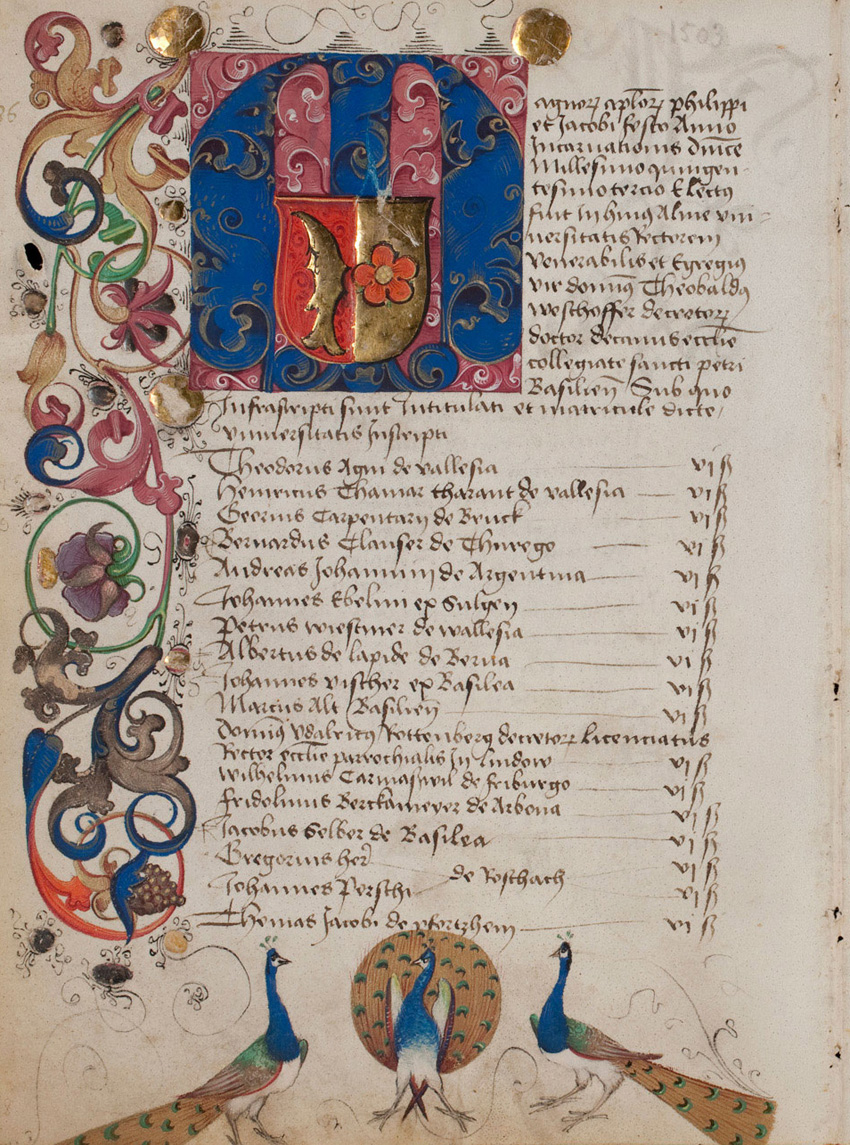 1503
agnorꝝ aplorꝝ philippi
et Jacobi festo Anno
Incarnationis dnice
Millesimo quingen-
tesimo tercio Electus
fuit In huius Alme vni-
uersitatis Rectorem
Venerabilis et Egregius
vir dominus Theobaldus
westhoffer decretorꝝ
doctor decanus ecclie
collegiate sancti petri
Basilien̄ Sub quo
Infrascripti sunt Intitulati et matricule dicte
vniuersitatis Inscripti
Theodorus Agni de vallesia vi ß
Heinricus Thamar tharant de vallesia vi ß
Georius Carpentarij de Bruck vi ß
Bernardus Clauser de Thurego vi ß
Andreas Johannin de Argentina vi ß
Johannes Ebelin ex Sulgen vi ß
Petrus wiestiner de wallesia vi ß
Albertus de lapide de Berna vi ß
Johannes vischer ex Basilea vi ß
Marcus Alt Basilien̄ vi ß
Dominus vdalricus Rottenberg decretorꝝ licenciatus
Rector ecclie parrochialis In lindow vi ß
wilhelmus Carmaswil de friburgo vi ß
fridolinus Berckameyer de Arbona vi ß
Jacobus Selber de Basilea vi ß
Gregorius her vi ß
de Roschach
Johannes Perschi vi ß
Thomas Jacobi de pfortzhem vi ß